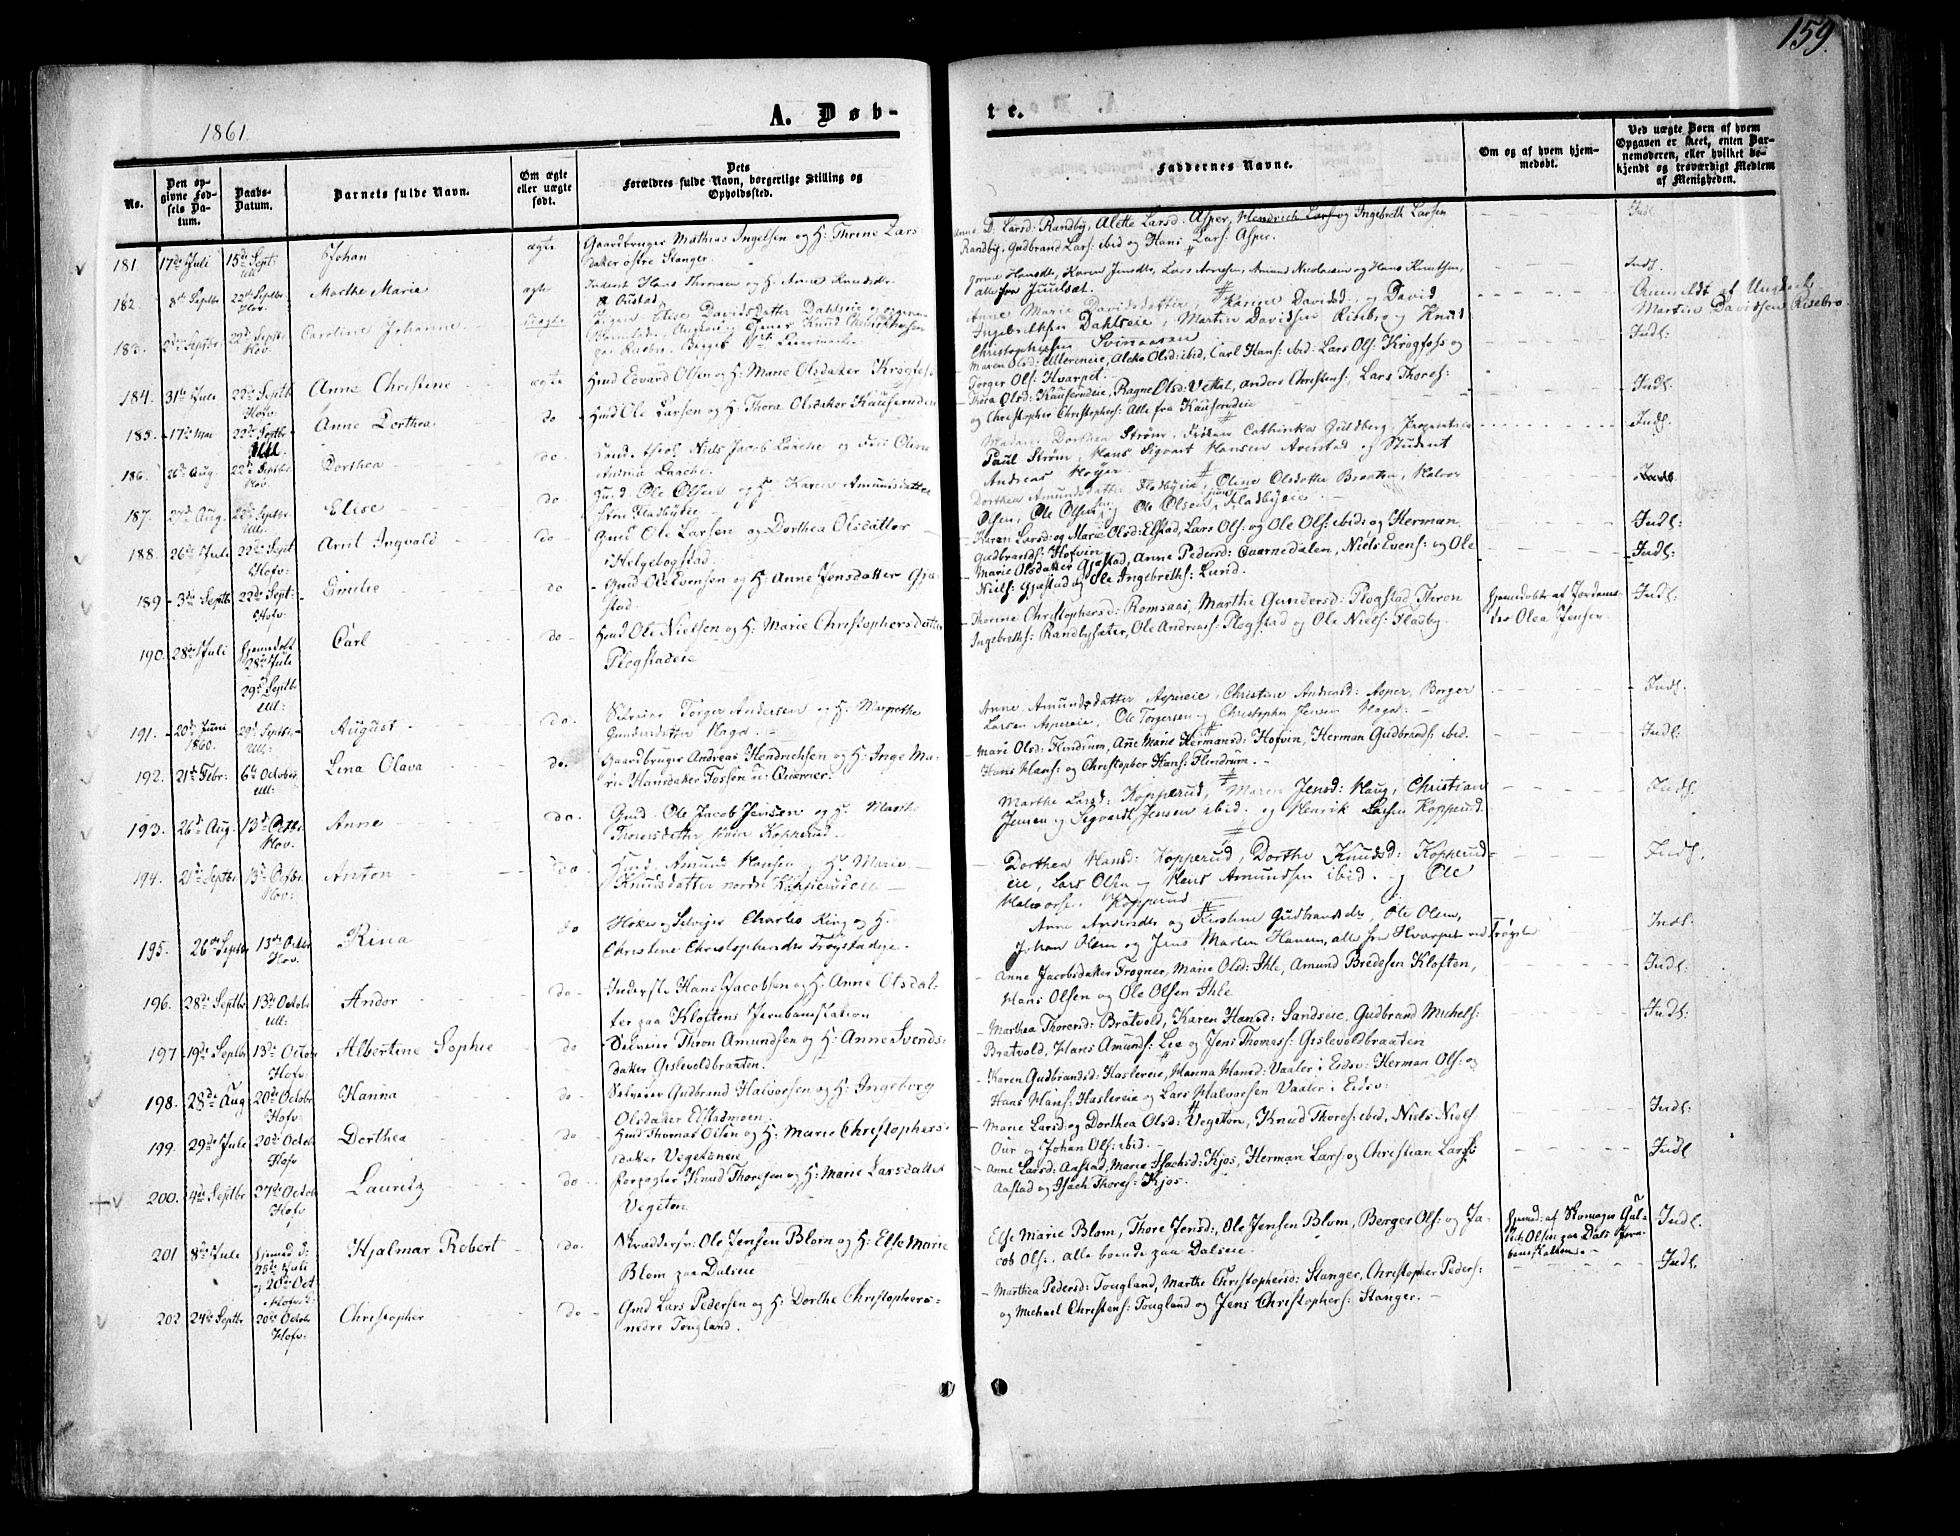 159.
1861.
A. Døb-
te.
No.
Den op-
givne Fød-
sels Da-
tum.
Daabs-
Datum.
Barnets fulde Navn.
Om ægte
eller uægte
født.
Dets
Forældres fulde Navn, borgerlige Stilling og
Opholdssted.
Faddernes Navne.
Om og af hvem hjem-
medøbt.
Ved uægte Børn af hvem
Opgaven er skeet, enten Bar-
nemoderen, eller hvilket be-
kjendt og troværdigt Medlem
af Menigheden.
181. 17de Juli 15de Sept: Ull:
Johan
ægte
Gaardbruger Mathias Ingelsen og H: Thrine Lars
datter østre Stanger.
Anne D. Larsd: Randby, Alette Larsd: Asper, Hendrich Lars: og Ingebreth Larsen
Randby, Gudbrand Lars: ibid og Hans Lars: Asper.
Indl.
182. 8de Septbr 22de Septbr Hov.
Marthe Marie
ægte
Inderst Hans Thronsen og H. Anne Knudsdtr
alle fra Juulsæt.
Indl.
183. 2den Septbr 22de Septbr Hov.
Caroline Johanne
uægte
Pigen Elise Davidsdatter Dahlseie og
Anne Marie Davidsdatter, Karine Davidsd: og David
Ingebrethsen Dahlseie, Martin Davidsen Risebro og Knud
Christophersen Svinaasen
Anmeldt af
Martin Davidsen Risebro
Indl:
184. 31te Juli 22de Septbr Hofv:
Anne Christine
ægte
Hmd Edvard Olsen og H: Marie Olsdatter Krogfoss
Maren Olsd: Ullereneie, Aleto Olsd: ibid, Carl Hans: ibid: Lars Ols: Krogfoss og
Torger Ols: Hvarpet.
Indl.
185. 17de Mai 22de Septbr Ull
Anne Dorthea
do
Hmd Ole Larsen og H. Thora Olsdatter Kauserudeie
Thora Olsd: Kauserudeie, Ragne Olsd: Vettal, Anders Christens: Lars Thores:
og Christopher Christophers: Alle fra Kauserudeie
Indl.
186. 26de Aug. 22de Septbr Hov.
Dorthea
do.
Cand. theol. Niels Jacob Laache og Fru Oline
Andrea Laache.
Madam Dorthea Strøm, Frøken Cathinka Guldberg, Proprietair
Paul Strøm, Hans Sigvart Hansen Averstad og Student
Andreas Høyer.
Indl.
187. 27de Aug. 22de Septbr Ull:
Elise
do
Gmd. Ole Olsen og H. Karen Amundsdatter
Store Fladbyeie
Dorthea Amundsdatter Fladbyeie, Oline Olsdatter Braathn, Halvor
Olsen, Ole Olsen og Ole Olsen Fladbyeie.
188. 26de Juli 22de Sept Hofv:
Arnt Ingvald
do
Gmd Ole Larsen og Dorthea Olsdatter
Helgebogstad.
Karen Larsd: og Marie Olsd: Elstad, Lars Ols: og Ole Ols: ibid: og Herman
Gudbrands: Hofvin
Indl:
189 3die Septbr 22de Sept: Hofv:
Emilie
do
Gmd Ole Evensen og H: Anne Jensdatter Gja-
stad.
Marie Olsdatter Gjastad, Anne Pedersd: Quarnedalen, Niels Evens: og Ole
Niels: Gjastad og Ole Ingebreths: Lund.
Indl:
190. 28de Juli Hjemdøbt 28de Juli 29de Septbr Ull:
Carl
do
Hmd Ole Nielsen og H: Marie Christophersdatter
Plogstadeie
Thorine Christophersd: Romsaas, Marthe Gundersd: Plogstad, Thron
Ingebreths: Randbysæter, Ole Andreas: Plogstad og Ole Niels: Fladby
Hjemdøbt af Jordemo-
der Olea Jensen.
Indl:
191. 20de Juni 1860. 29de Septbr Ull:
August
do.
Selveier Torger Andersen og H. Marthe
Gundersdatter Haga.
Anne Amundsdatter Aspereie, Christine Andreasd: Asper, Borger
Larsen Aspereie, Ole Torgersen og Christopher Jensen Haga.
Indl.
192. 21de Febr: 6te October Ull:
Lina Olava
do.
Gaardbruger Andreas Hendrichsen og H. Inge Ma-
rie Hansdatter Fossen u: Qværner.
Marie Olsd: Flindrum, Ane Marie Hermansd: Hofvin, Herman Gudbrands: ibid.
Hans Hans: og Christopher Hans: Flindrum.
Indl.
193. 26de Aug. 13de Octbr Hov.
Anne
do
Gmd. Ole Jacob Jensen og H. Marthe
Thorersdatter søndre Kopperud.
Marthe Larsd: Kopperud, Maren Jensd: Haug, Christian
Jensen og Sigvardt Jensen ibid. og Henrik Larsen Kopperud.
Indl.
194. 21de Septbr 13de Octbr Hov:
Anton
do
Hmd. Amund Hansen og H. Marie
Knudsdatter nordre Kopperudeie
Dorthea Hansd: Kopperud, Dorthe Knudsd: Kopperud-
eie, Lars Olsen og Hans Amundsen ibid. og Ole
Halvors. Kopperud
Indl.
195. 26de Septbr 13de Octbr Hov.
Rina
do
Høker og Selveier Charles King og H.
Christine Christophersdtr Frøystadeie.
Anne Andersdtr og Kirstine Gudbrandsdtr, Ole Olsen,
Johan Olsen og Jens Martin Hansen, alle fra Hvarpet ved Trøgstad
Indl.
196. 28de Septbr 13de Octobr Ull:
Andor
do
Inderste Hans Jacobsen og H: Anne Olsdat-
ter paa Kløftens Jernbanestation
Anne Jacobsdatter Frogner, Marie Olsd: Ihle, Amund Bredesen Kløften,
Hans Olsen og Ole Olsen Ihle
Indl:
197 19de Septbr 13de Octobr Hofv:
Albertine Sophie
do
Selveier Thron Amundsen og H: Anne Svends-
datter Gislevoldbraaten.
Marthea Thorersd: Bråtvold, Karen Hansd: Sandseie, Gudbrand Michels:
Bratvold, Hans Amunds: Lie og Jens Thomas: Gislevoldbraaten
Indl:
198. 28de Aug 20de Octobr Hofv:
Hanna
do.
Selveier Gudbrand Halvorsen og H: Ingeborg
Olsdatter Elstadmoen.
Karen Gudbrandsd: Haslereie, Hanna Hansd: Vaaler i Eidsv: Herman Ols: og
Hans Hans: Haslereie og Lars Halvorsen Vaaler i Eidsv:
Indl:
199. 29de Juli 20de Octobr Hofv
Dorthea
do
Hmd Thomas Olsen og H: Marie Christophers-
datter Vegetoneie
Marie Larsd: og Dorthea Olsd: Vegeton, Knud Thores: ibid, Niels Niels
Our og Johan Ols: ibid.
Indl
200. 4de Septbr 27de Octobr Hofv
Lauritz
do
Forpagter Knud Thoresen og H: Marie Larsdatter
Vegeton
Anne Larsd: Aastad, Marie Isachsd: Kjos, Herman Lars: og Christian Lars:
Aastad og Isach Thores: Kjos.
201 8de Juli Hjemd d: 25de Juli og 20de Oct Hofv:
Hjalmar Robert
do.
Skrædders: Ole Jensen Blom og H: Else Marie
Blom paa Dalseie
Else Marie Blom, Thore Jensd:, Ole Jensen Blom, Berger Ols: og Ja-
cob Ols:, alle boende paa Dalseie.
Hjemd: af Skomager Gul-
lik Olsen paa Dals Jern-
banestation.
Indl.
202 24de Septbr 20de Octobr Hofv:
Christopher
do
Gmd Lars Pedersen og H: Dorthe Christophers-
nedre Tougland.
Marthea Pedersd: Tougland, Marthe Christophersd: Stanger, Christopher Peders:
og Michael Christens: Tougland og Jens Christophers: Stanger.
Indl.